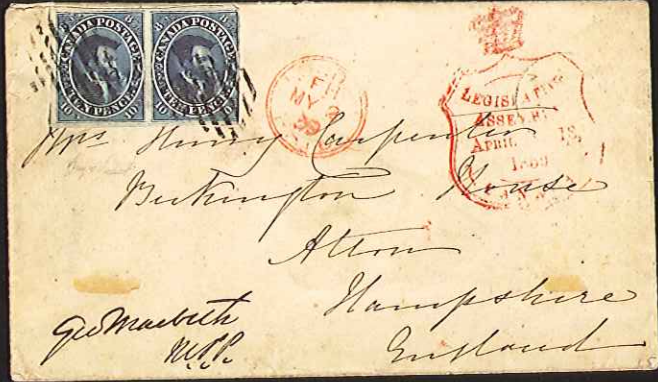 CANADA POSTAGE
8 D
10 TEN PENCE 10
CANADA POSTAGE
8 D
10 TEN PENCE 10
MY 2
59
LEGISLATIVE
ASSEMB
APRIL 18
1859
Mrs Henry Carpenter
House
Alton
Hampshire
England
Geo Macbeth
M.P.P.